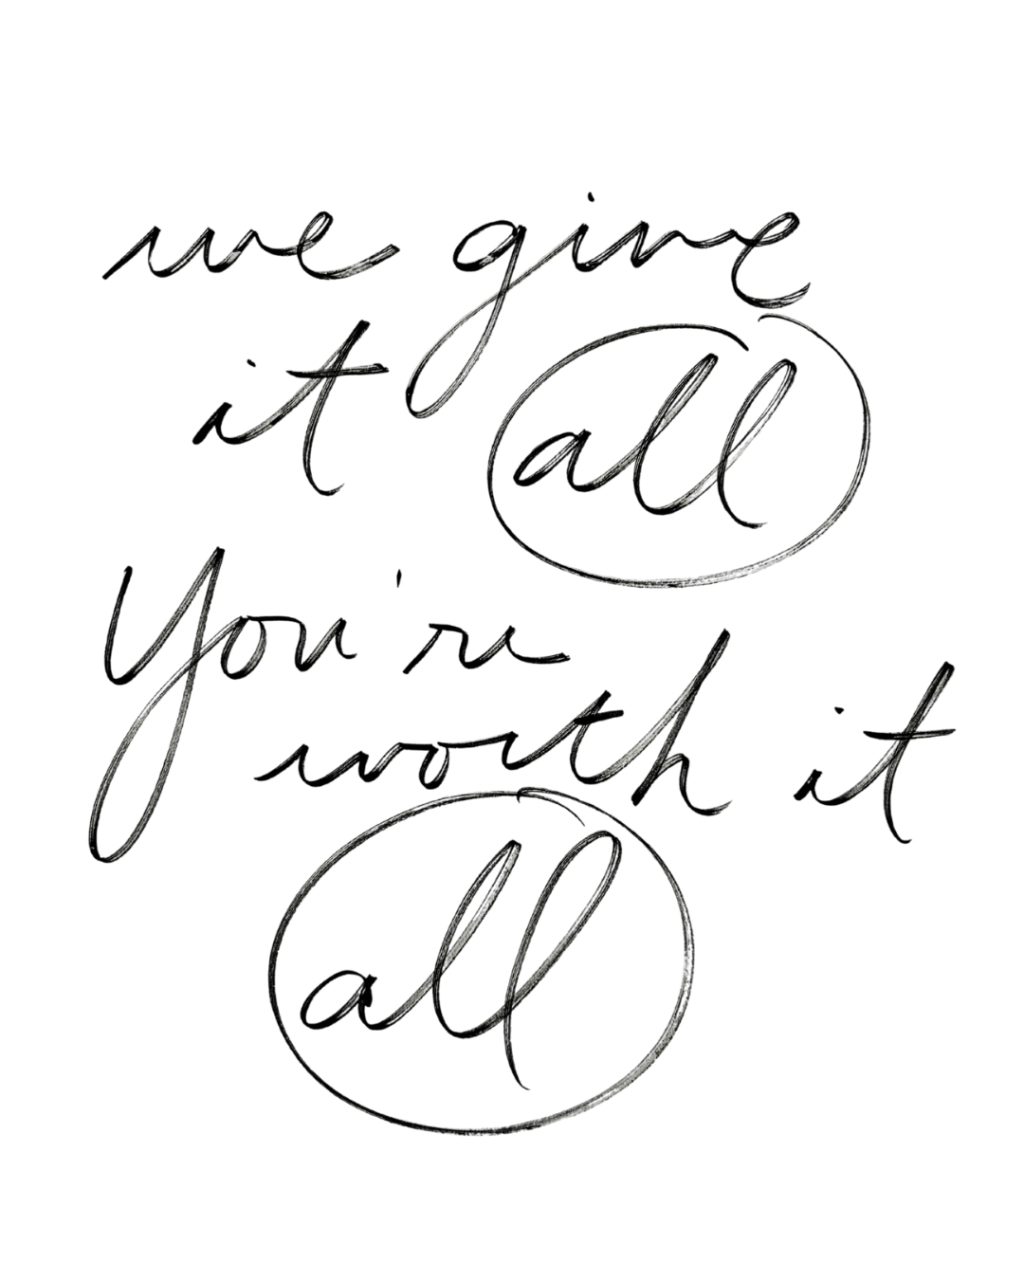 we give
it all
You're
worth it
all